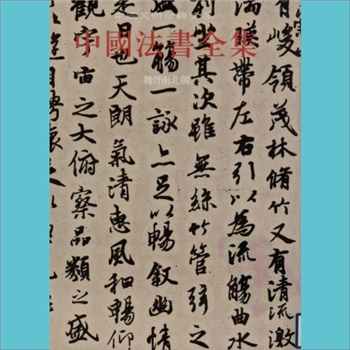 中國美術分類全集
中國法書全集
魏晉南北朝
有峻領茂林脩竹又有清流激
湍暎帶左右引以為流觴曲水
列坐其次雖無絲竹管弦之
一觴一詠亦足以暢叙幽情
是日也天朗氣清惠風和暢仰
觀宇宙之大俯察品類之盛